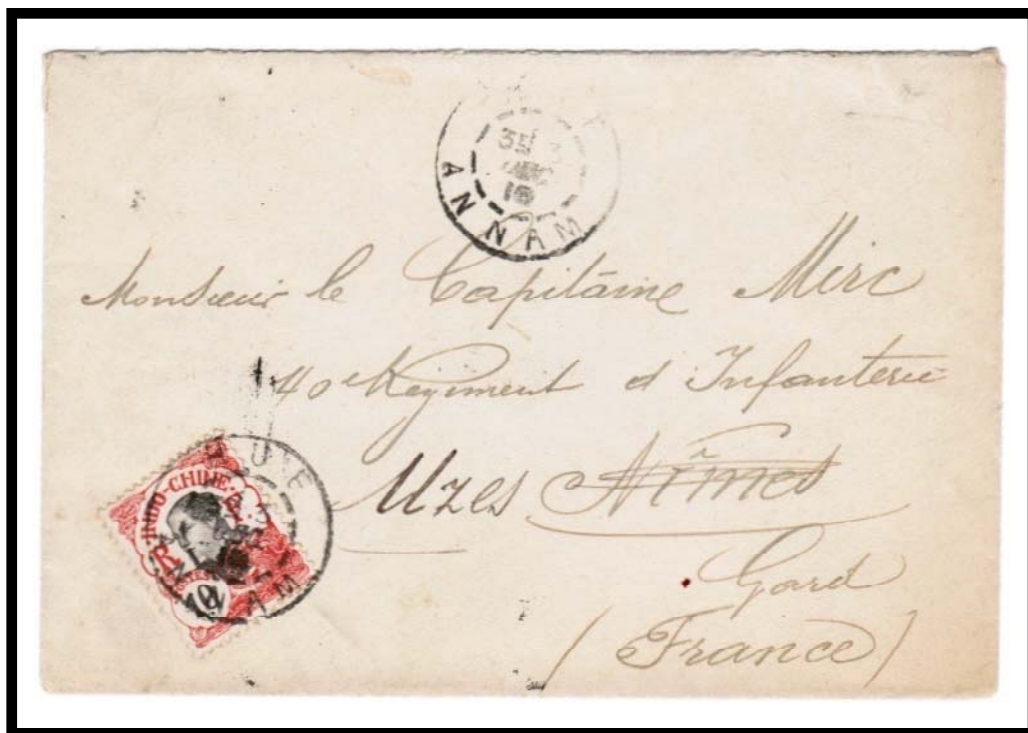 ANNAM
Monsieur le Capitaine Mirc
40e Régiment d'Infanterie
Uzes Nîmes
Gard
(France)
HUE
INDO-CHINE
R F
10
ANNAM